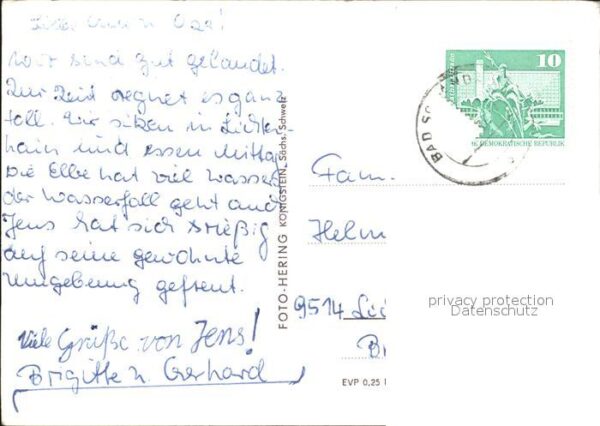 Liebe Oma u. Opa!
wir sind gut gelandet.
Zur Zeit regnet es ganz
toll. Wir sitzen in Lichten-
hain und essen Mittag
Die Elbe hat viel Wasser
der Wasserfall geht auch
Jens hat sich riesig
auf seine gewohnte
Umgebung gefreut.
Viele Grüße von Jens!
Brigitte u. Gerhard
FOTO-HERING KÖNIGSTEIN, Sächs. Schweiz
10
DEMOKRATISCHE REPUBLIK
BAD SCHAND
Fam.
Helm
9514
EVP 0,25
privacy protection
Datenschutz